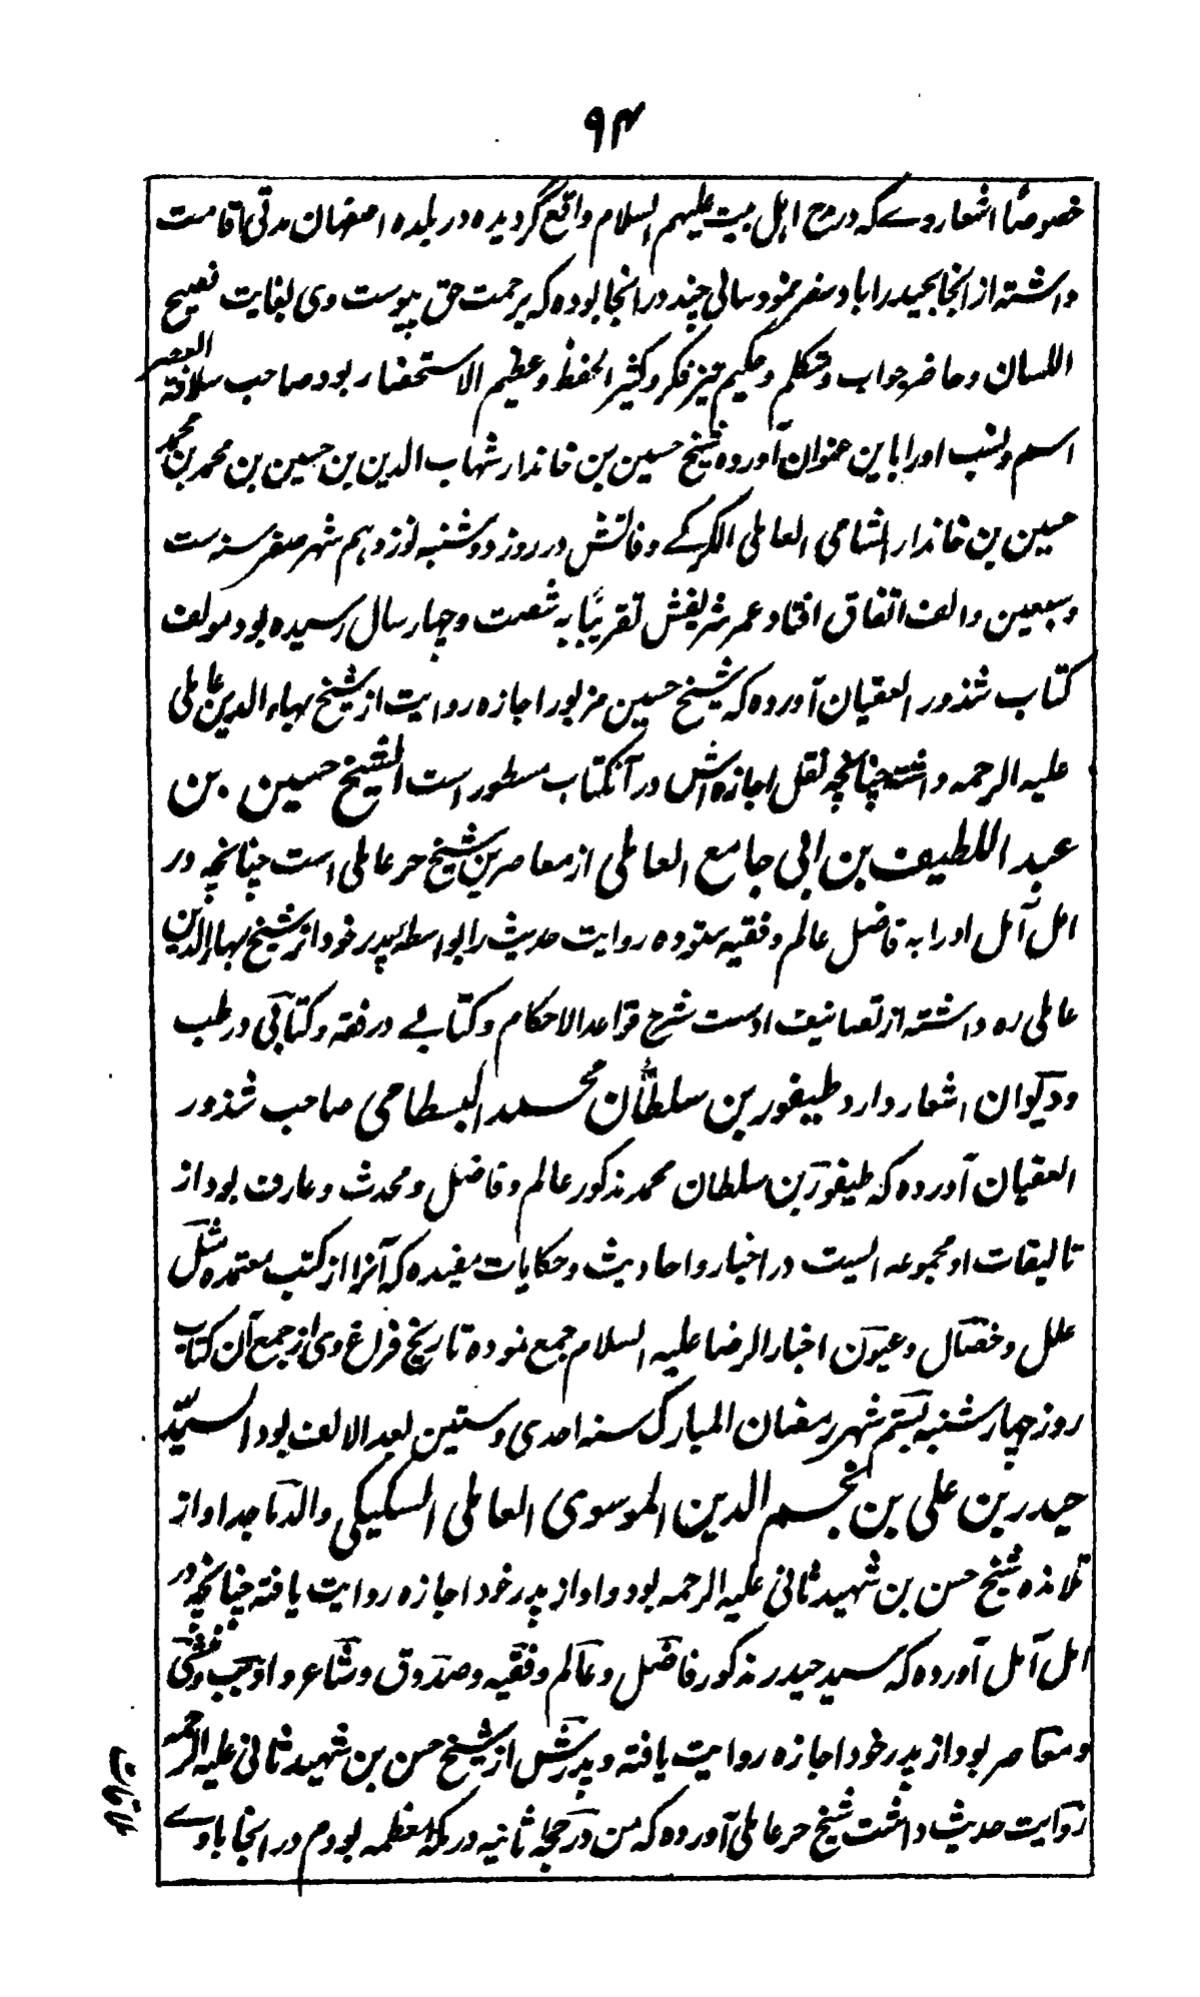 ۹۴
خصوصاً اشعار وے که در مدح اہل بیت علیہم السلام واقع گردیده در بلده اصفہان مدتی اقامت
داشته از انجا بحیدراباد سفر نمود سالی چند در انجا بوده که برحمت حق پیوست وی بغایت فصیح
اللسان و حاضر جواب و متکلم و حکیم تیز فکر و کثیر الحفظ و عظیم الاستحضار بود صاحب سلافة العصر
اسم و نسب او را باین عنوان آورده شیخ حسین بن خاندار شہاب الدین بن حسین بن محمد بن محمد
حسین بن خاندار الشامی العاملی الکرکے وفاتش در روز دوشنبه نوزدہم شہر صفر سنه ست
و سبعین و الف اتفاق افتاد عمر شریفش تقریباً به شصت و چہار سال رسیده بود مولف
کتاب شذور العقیان آورده که شیخ حسین مزبور اجازه روایت از شیخ بہاء الدین عاملی
علیه الرحمه داشته چنانچه نقل اجازه اش در آنکتاب مسطور است الشیخ حسین بن
عبد اللطیف بن ابی جامع العاملی از معاصرین شیخ حر عاملی است چنانچه در
امل آمل او را به فاضل عالم و فقیه ستوده روایت حدیث را بواسطه پدر خود از شیخ بہاء الدین
عاملی ره داشته از تصانیف اوست شرح قواعد الاحکام و کتابے در فقه و کتابی در طب
و دیوان اشعار دارد طیفور بن سلطان محمد البسطامی صاحب شذور
العقیان آورده که طیفور بن سلطان محمد مذکور عالم و فاضل و محدث و عارف بود از
تالیفات او مجموعه ایست در اخبار و احادیث و حکایات مفیده که آنرا از کتب معتمده مثل
علل و خصال و عیون اخبار الرضا علیه السلام جمع نموده تاریخ فراغ وی از جمع آن کتاب
روز چہارشنبه بستم شہر رمضان المبارک سنه احدی و ستین بعد الالف بود السیّد
حیدر بن علی بن نجم الدین الموسوی العاملی السکیکی والد ماجد او از
تلامذه شیخ حسن بن شہید ثانی علیه الرحمه بود و او از پدر خود اجازه روایت یافته چنانچه در
امل آمل آورده که سید حیدر مذکور فاضل و عالم و فقیه و صدوق و شاعر و ادیب و منشی
و معاصر بود از پدر خود اجازه روایت یافته و پدرش از شیخ حسن بن شہید ثانی علیه الرحمه
روایت حدیث داشت شیخ حر عاملی آورده که من در حجه ثانیه در مکه معظمه بودم در انجا باوے